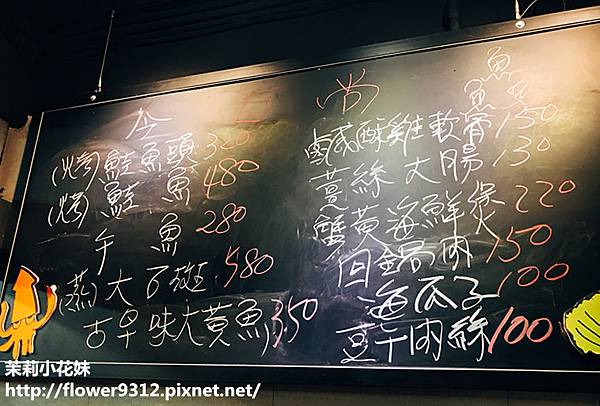 今日
(烤)鮭魚頭320
(烤)鮭魚480
午魚280
(蒸)大石斑.580
古早味大黃魚350
尚鱻
鹹酥雞軟骨150
薑絲大腸130
蟹黃海鮮煲220
回鍋肉150
海瓜子100
豆干肉絲100
茉莉小花妹
http://flower9312.pixnet.net/